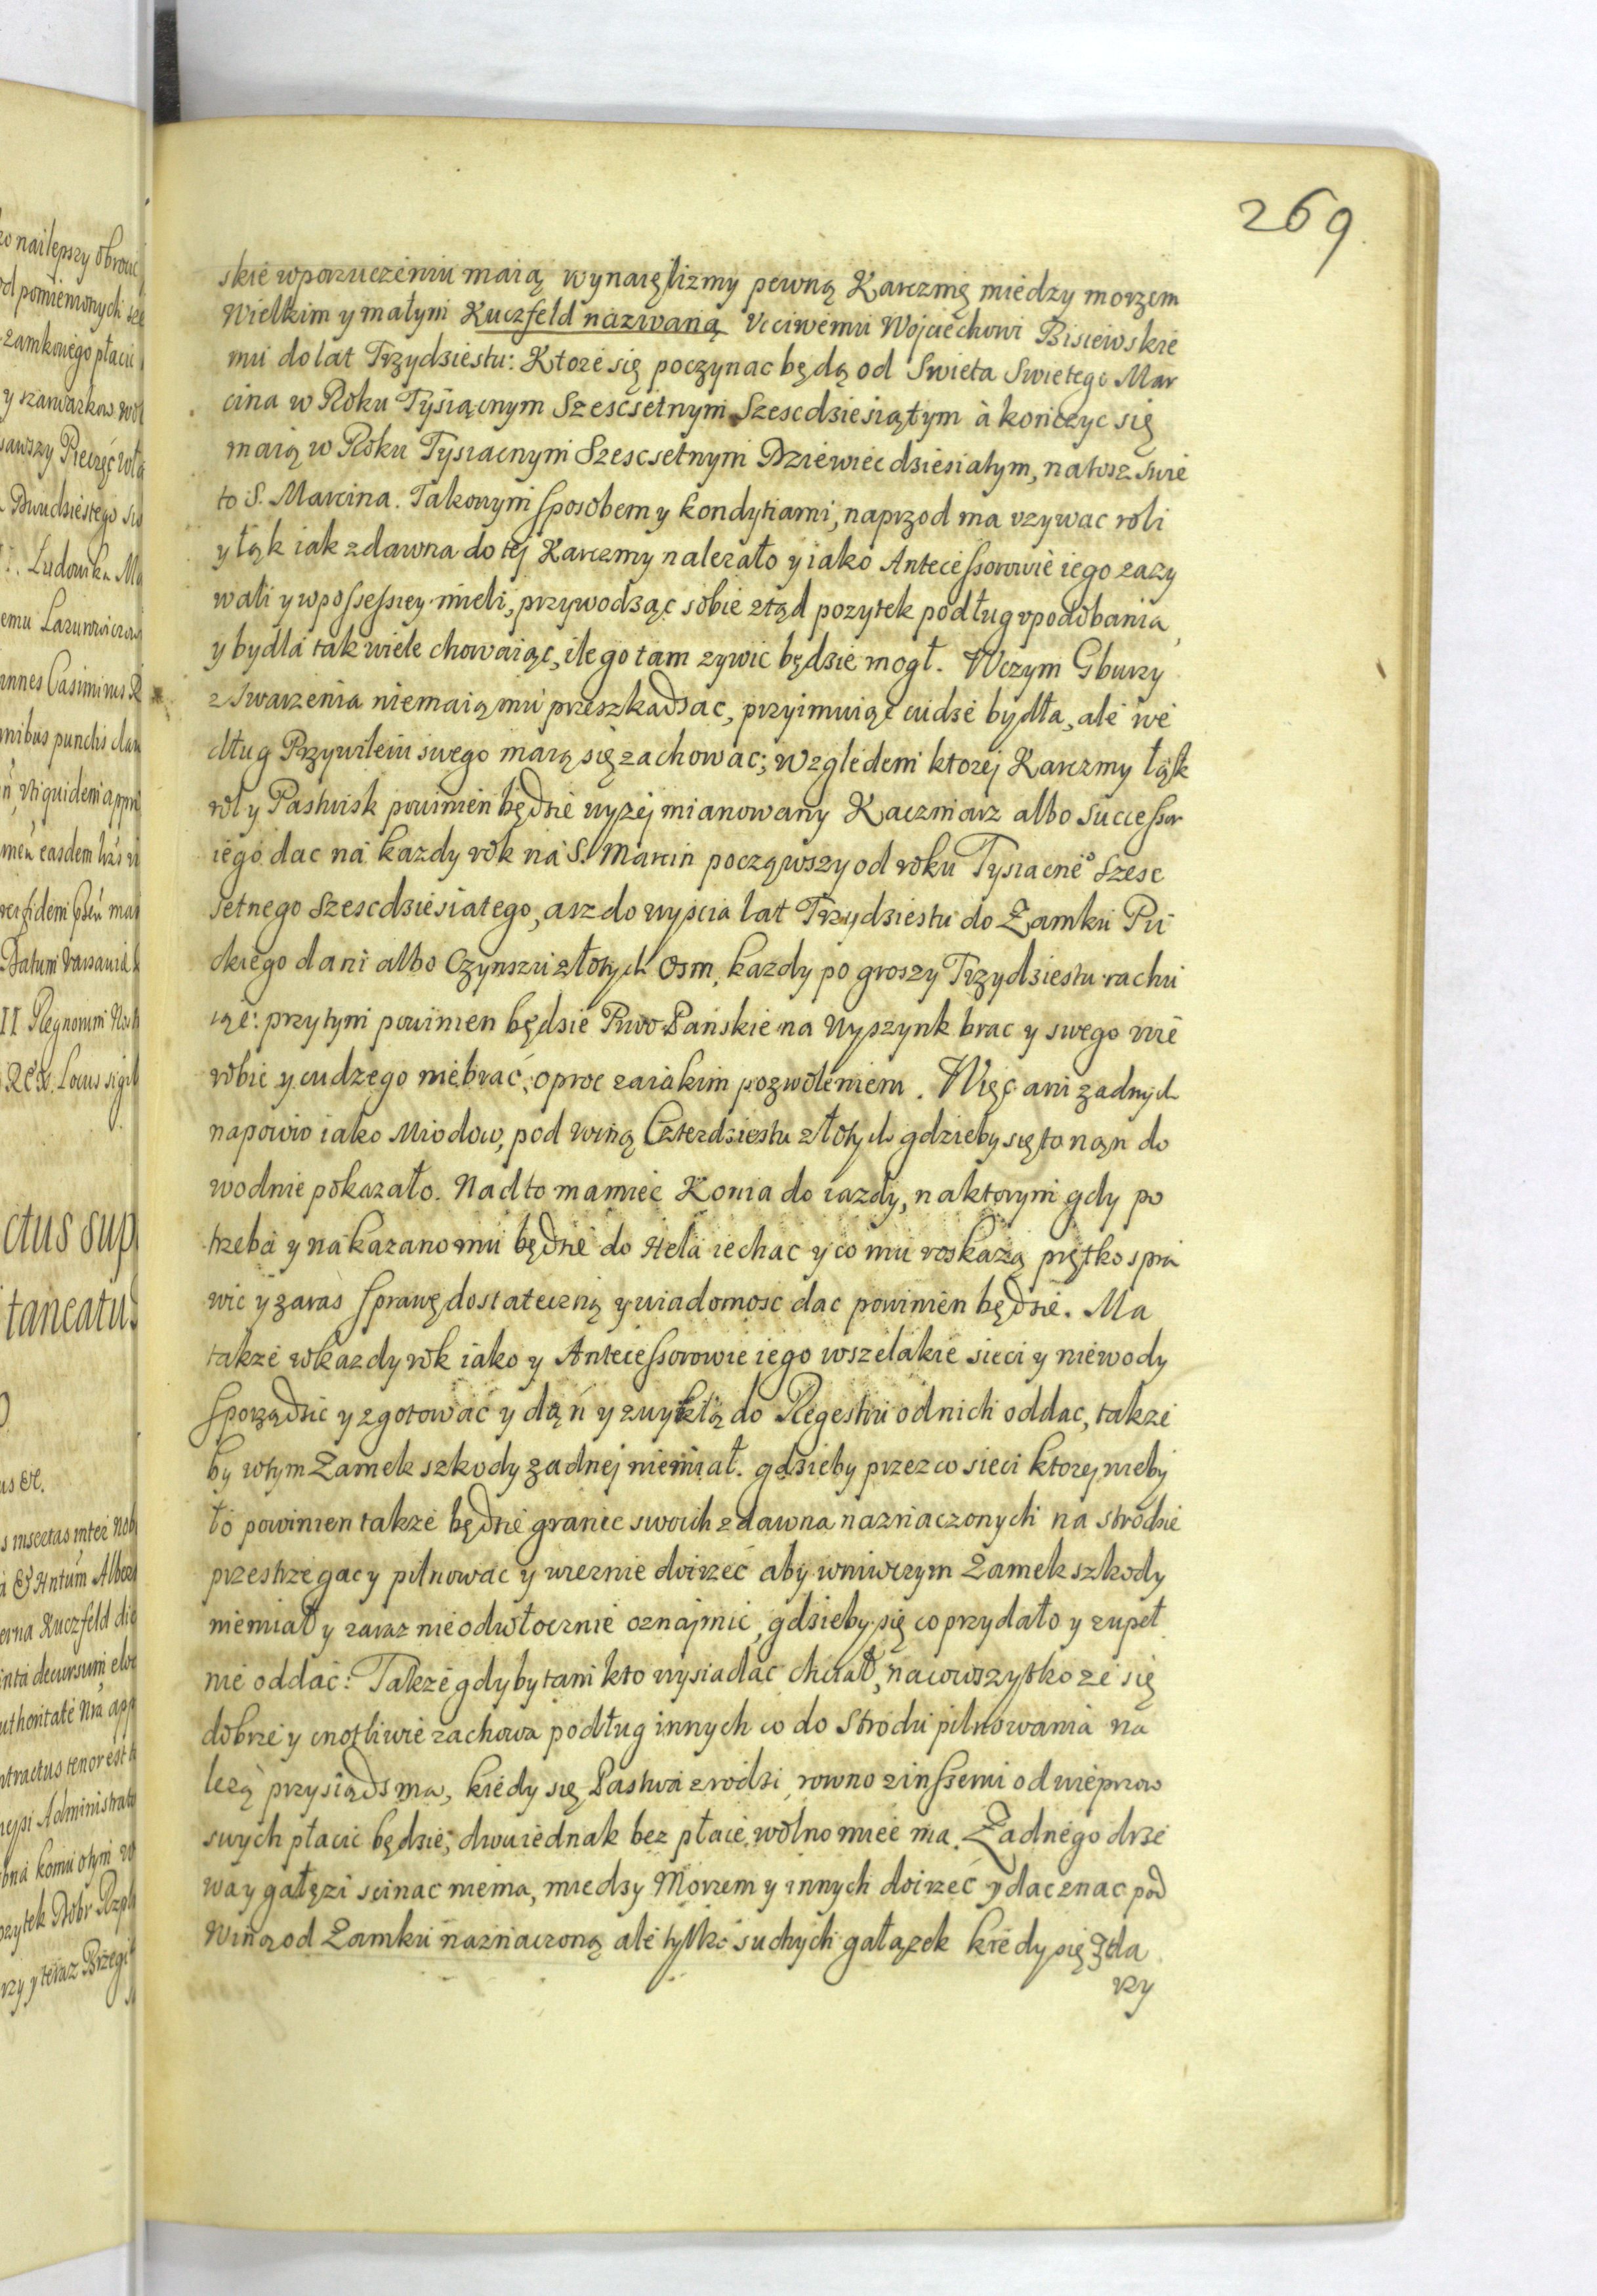 269
skie wporuczeniu maią wynaięlizmy pewną Karczmę miedzy morzem
Wielkim y małym Kuczfeld nazwaną Vcciwemu Wojciechowi Bisiewskie
mu do lat Trzydziestu: Ktore się poczynac będą od Swieta Swietego Mar
cina w Roku Tysiącnym Szescsetnym Szescdziesiątym à konczyc się
maią w Roku Tysiacnym Szescsetnym Dziewiecdziesiatym, natosz swie
to S. Marcina. Takowym sposobem y kondytiami, naprzod ma vzywac roli
y łąk iak zdawna do tej Karczmy nalezało y iako Antecessorowie iego zazy
wali y wpossessiey mieli, przywodząc sobie ztąd pozytek podług vpodobania,
y bydła tak wiele chowaiąc, ile go tam zywic będzie mogł. Wczym Gburzy
z Swarzenia niemaią mu przeszkadzac, przyimuiąc cudze bydła, ale we
dług Przywileiu swego maią się zachowac; Wzgledem ktorej Karczmy łąk
rol y Pastwisk powinien będzie wyzej mianowany Kaczmarz albo Successor
iego dac na kazdy rok na S. Marcin począwszy od roku Tysiacne° Szesc
setnego Szescdziesiatego, asz do wyscia lat Trzydziestu do Zamku Pu
ckiego dani albo Czynszu złotych Osm, kazdy po groszy Trzydziestu rachu
iąc: przytym powinien będzie Piwo Pańskie na Wyszynk brac y swego nie
robic y cudzego niebrać, oproc za iakim pozwoleniem. Więc ani zadnych
napoiow iako Miodow, pod winą Czterdziestu złotych gdzieby się to nań do
wodnie pokazało. Nadto ma miec Konia do iazdy, na ktorym gdy po
trzeba y nakazano mu będzie do Hela iechac y co mu roskazą prętko spra
wic y zaras sprawę dostateczną y wiadomosc dac powinien będzie. Ma
takze wkazdy rok iako y Antecessorowie iego wszelakie sieci y niewody
sporządzic y zgotować y dąń y zwykłą do Regestru odnich oddac, takze
by wtym Zamek szkody zadnej niemiał. gdzieby przez co sieci ktorej nieby
ło powinien takze będzie granic swoich zdawna naznaczonych na strodzie
przestrzegac y pilnowac y wiernie doirzeć aby wniwczym Zamek szkody
niemiał y zaraz nieodwłocznie oznajmic, gdzieby się co przydało y zupeł
nie oddać: Takze gdyby tam kto wysiadac chciał, na co wszytko ze się
dobrze y cnotliwie zachowa podług innych co do Strodu pilnowania na
lezą przysiądz ma, kiedy się Pastwa zrodzi rowno zinszemi od wieprzow
swych płacic będzie, dwu iednak bez płacie wolno miec ma. Żadnego drze
wa y gałęzi scinac niema, miedzy Morzem y innych doirzeć y dac znac pod
Winą od Zamku naznaczoną ale tylko suchych gałązek kiedy się zda
rzy